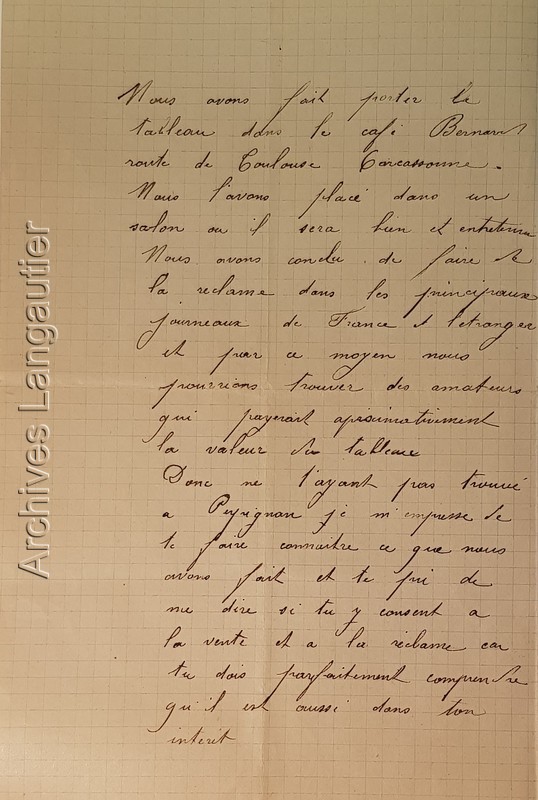 Nous avons fait porter le
tableau dans le café Bernard
route de Toulouse Carcassonne.
Nous l'avons placé dans un
salon ou il sera bien et entretenu
Nous avons conclu de faire de
la reclame dans les principeaux
journeaux de France et l'etranger
et par ce moyen nous
pourrions trouver des amateurs
qui payerait apisimativement
la valeur du tableau
Donc ne t'ayant pas trouvé
a Perpignan je m'empresse de
te faire connaitre ce que nous
avons fait et te pri de
me dire si tu y consent a
la vente et a la réclame car
tu dois parfaitement comprendre
qu'il est aussi dans ton
interêt
Archives Langautier